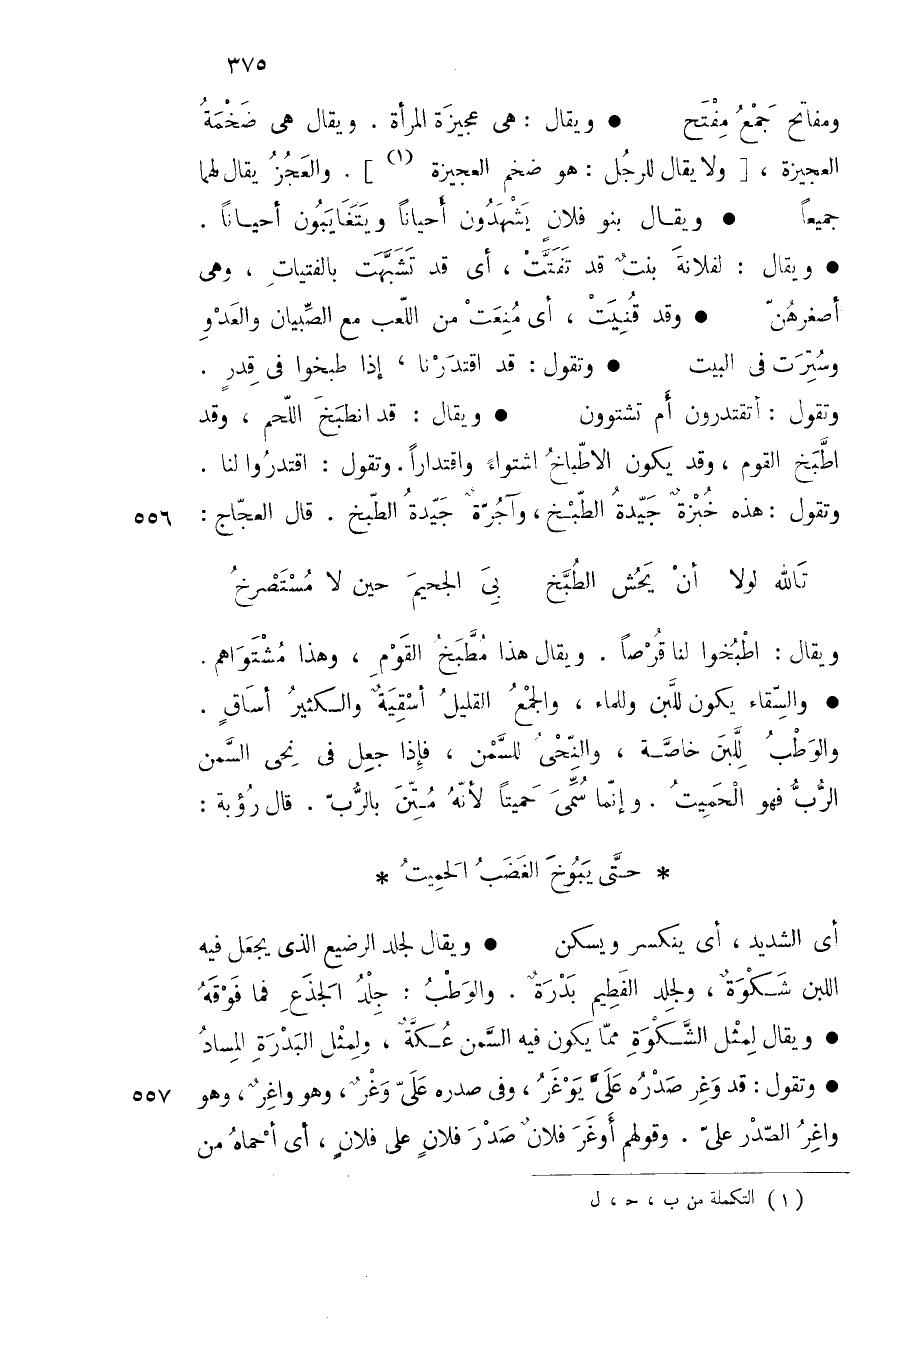 ٣٧٥
ومفاتح جَمْعُ مِفْتَح ● ويقال : هى عجيزَة المرأة . ويقال هى ضَخْمَةُ
العجيزة ، [ ولا يقال للرجُل : هو ضخم العجيزة (١) ] . والعَجُزُ يقال لهما
جميعاً ● ويقال بنو فلان يَشْهَدُون أحياناً ويَتَغَايَبُون أحياناً .
● ويقال : لفلانةَ بنتٌ قد تَفَتَّتْ ، أى قد تَشَبَّهَت بالفتياتِ ، وهى
أصغرهُنّ ● وقد قُنِّيَتْ ، أى مُنِعَتْ من اللّعب مع الصِّبيان والعَدْوِ
وسُتِرَت فى البيت ● وتقول : قد اقتدَرْنا ، إذا طبخوا فى قِدرٍ .
وتقول : أتقتدرون أم تشتوون ● ويقال : قد انطبَخَ اللّحم ، وقد
اطَّبَخ القوم ، وقد يكون الاطّباخُ اشتواءً واقتداراً . وتقول : اقتدرُوا لنا .
وتقول : هذه خُبْزةٌ جَيّدةُ الطَّبْخ ، وآجُرّةٌ جَيّدةُ الطّبخ . قال العجّاج : ٥٥٦
تَاللهِ لولا أنْ يَحُش الطُبَّخ بِىَ الجحيمَ حين لا مُسْتَصْرخُ
ويقال : اطْبُخوا لنا قُرْصاً . ويقال هذا مُطَّبَخُ القَوْمِ ، وهذا مُشْتَوَاهم .
● والسِّقاء يكون للَّبن وللماء ، والجمْعُ القليلُ أسْقِيَةٌ والكثيرُ أسَاقٍ .
والوَطْبُ لِلَّبنَ خاصّة ، والنِّحْىُ للسَّمْن ، فإذا جعِل فى نِحى السَّمن
الرُّبُّ فهو الْحَمِيتُ . وإنّما سُمِّىَ حَميتاً لأنّهُ مُتِّنَ بالرُّبّ . قال رُؤبة :
* حتَّى يَبُوخَ الغَضَبُ الحَمِيتُ *
أى الشديد ، أى ينكسر ويسكن ● ويقال لجلد الرضيع الذى يجعَل فيه
اللبن شَكْوَةٌ ، ولجلد الفَطِيم بَدْرَةٌ . والوَطْبُ : جِلْدُ الجَذَعِ فما فَوْقَهُ
● ويقال لِمثْل الشَّكْوَةِ ممّا يكون فيه السَّمن عُكَّةٌ ، ولِمثْل البَدْرَةِ المِسادُ
● وتقول : قد وَغِر صَدْرُه عَلَىَّ يَوْغَرُ ، وفى صدره عَلَىّ وَغْرٌ ، وهو واغِرٌ ، وهو ٥٥٧
واغِرُ الصّدْر علىّ . وقولهم أَوغَرَ فلانٌ صَدْرَ فلانٍ على فلانٍ ، أى أحماهُ من
(١) التكملة من ب ، ح ، ل